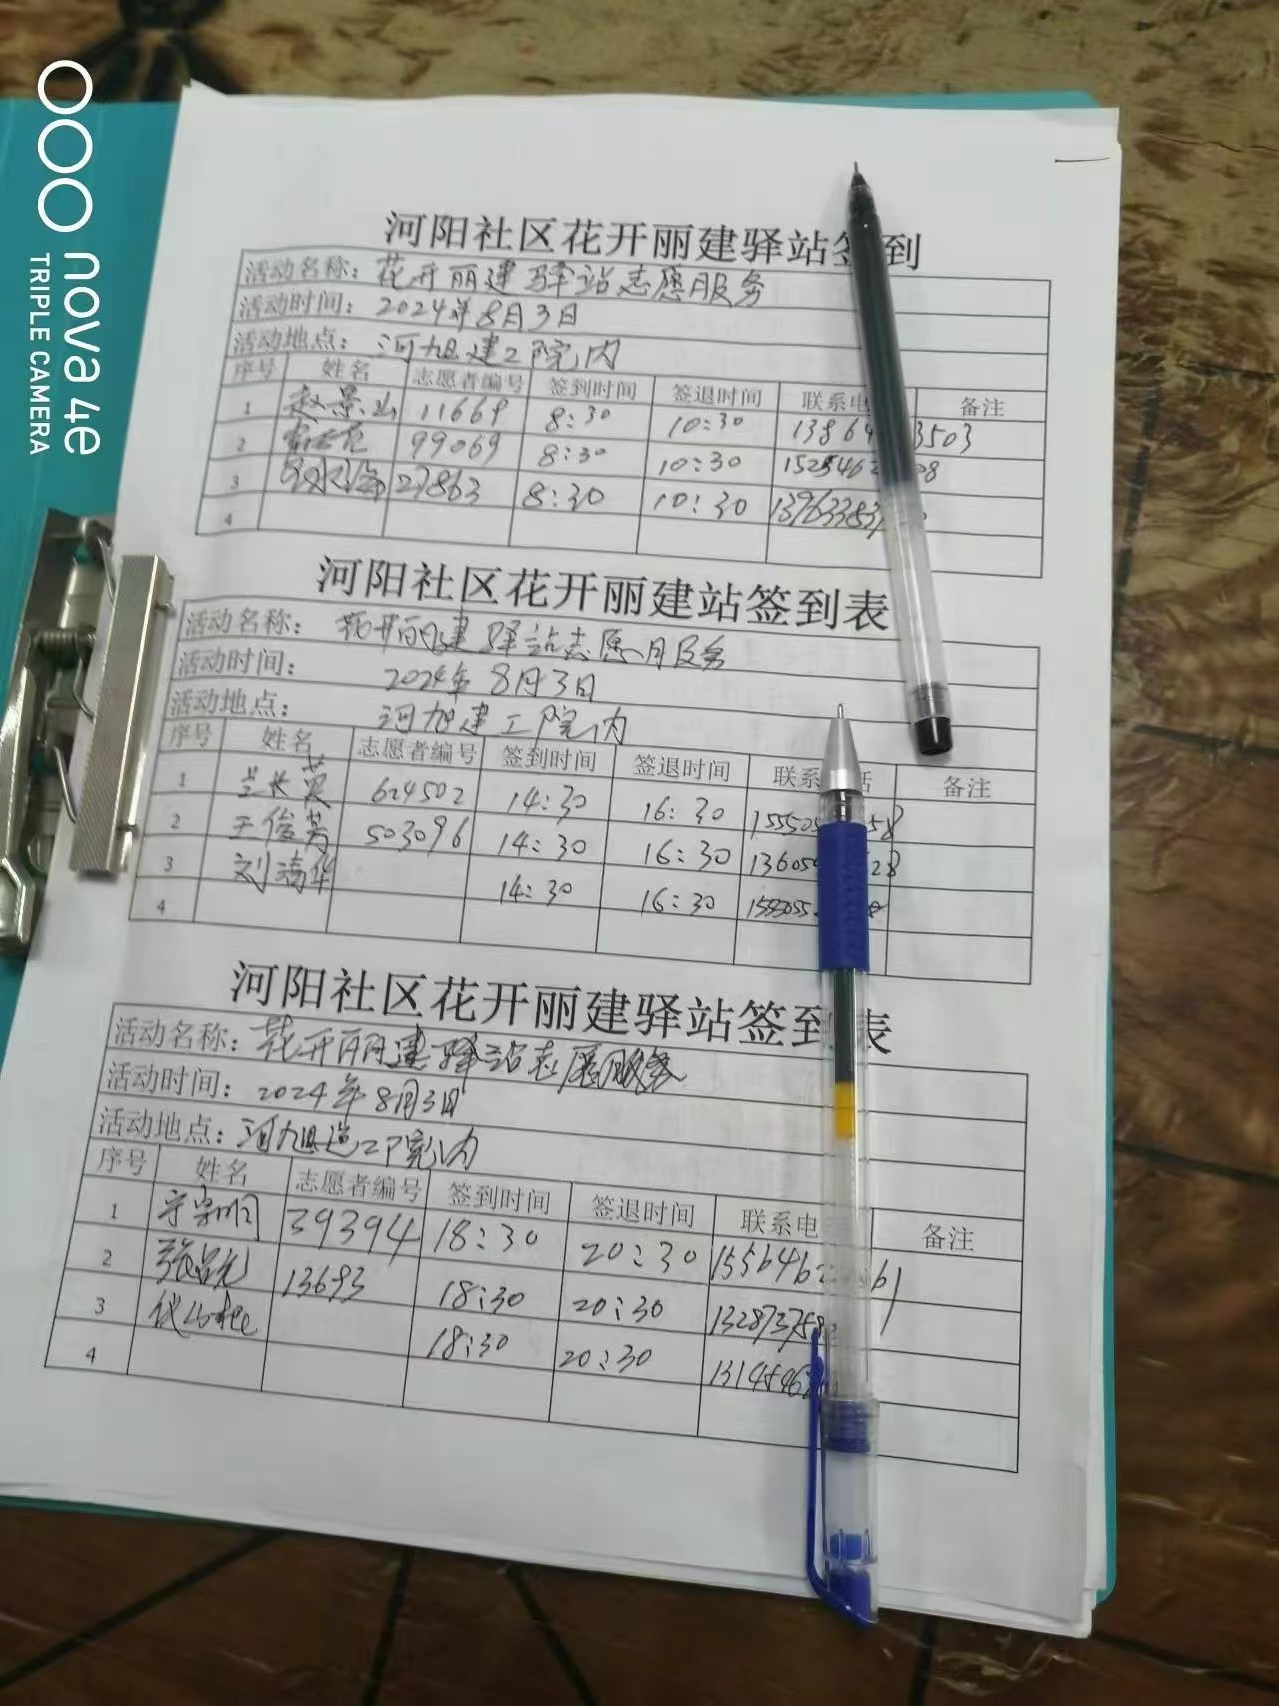 nova 4e
TRIPLE CAMERA
河阳社区花开丽建驿站签到
活动名称：花开丽建驿站志愿服务
活动时间：2024年8月3日
活动地点：河旭建工院内
序号 姓名 志愿者编号 签到时间 签退时间 联系电 备注
1 赵景山 11669 8:30 10:30 13864 3503
2 99069 8:30 10:30 1525462 08
3 27863 8:30 10:30 139633837
4
河阳社区花开丽建站签到表
活动名称：花开丽建驿站志愿服务
活动时间：2024年8月3日
活动地点：河旭建工院内
序号 姓名 志愿者编号 签到时间 签退时间 联系 话 备注
1 兰长英 624502 14:30 16:30 155505 58
2 王俊芳 503096 14:30 16:30 136059 28
3 刘清华 14:30 16:30
4
河阳社区花开丽建驿站签到表
活动名称：花开丽建驿站志愿服务
活动时间：2024年8月3日
活动地点：河旭建工院内
序号 姓名 志愿者编号 签到时间 签退时间 联系电 备注
1 39394 18:30 20:30 1556462 61
2 张昌光 13693 18:30 20:30 132873758
3 18:30 20:30 1314546
4